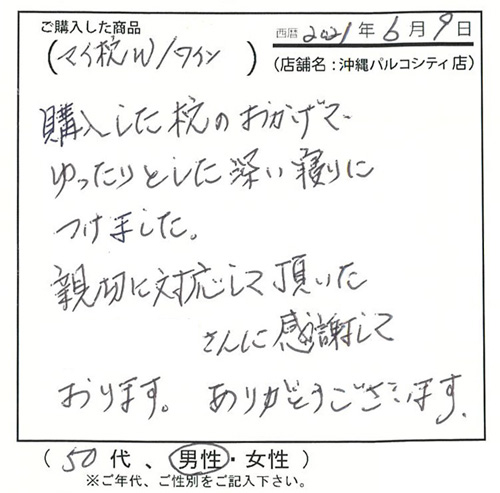 ご購入した商品
西暦 2021年6月9日
(マイ枕W/ワイン)
(店舗名:沖縄パルコシティ店)
購入した枕のおかげで、
ゆったりとした深い寝りに
つけました。
親切に対応して頂いた
さんに感謝して
おります。ありがとうございます.
(50代、男性・女性)
※ご年代、ご性別をご記入下さい。